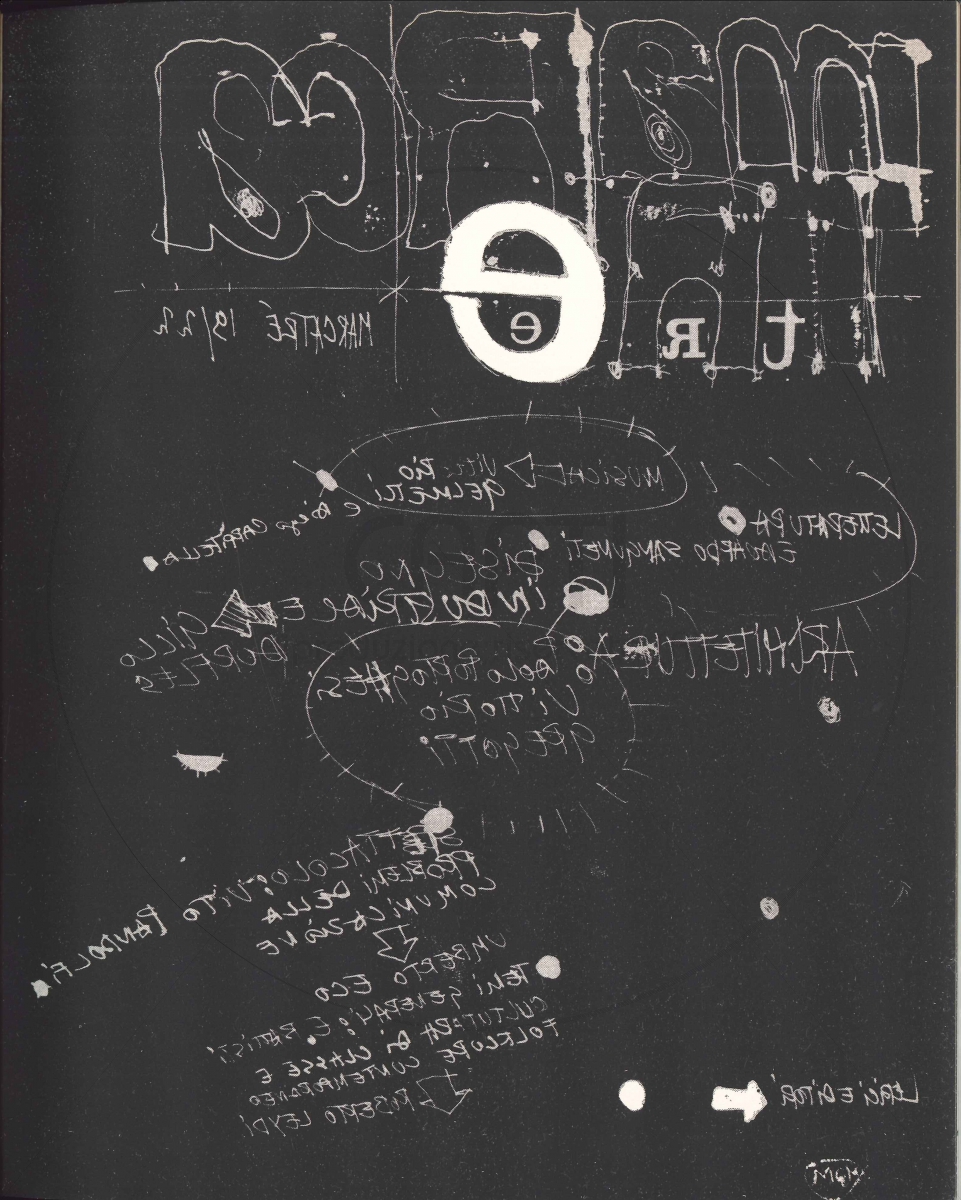 MARCATRE
e
t r e
MARCATRÉ 19/22
MUSICA Vittorio
GELMETTI
e Diego CARPITELLA
LETTERATURA
EDOARDO SANGUINETI
DISEGNO
INDUSTRIALE GILLO
DORFLES
ARCHITETTURA
PAOLO PORTOGHESI,
VITTORIO
GREGOTTI
SPETTACOLO: VITO PANDOLFI.
PROBLEMI DELLA
COMUNICAZIONE
UMBERTO ECO
TEMI GENERALI: E. BATTISTI
CULTURA DI CLASSE E
FOLKLORE CONTEMPORANEO
ROBERTO LEYDI
LERICI EDITORI